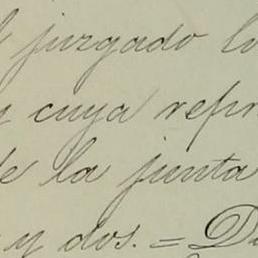 l juzgado lo
y cuya repr
de la junta
y dos. = D